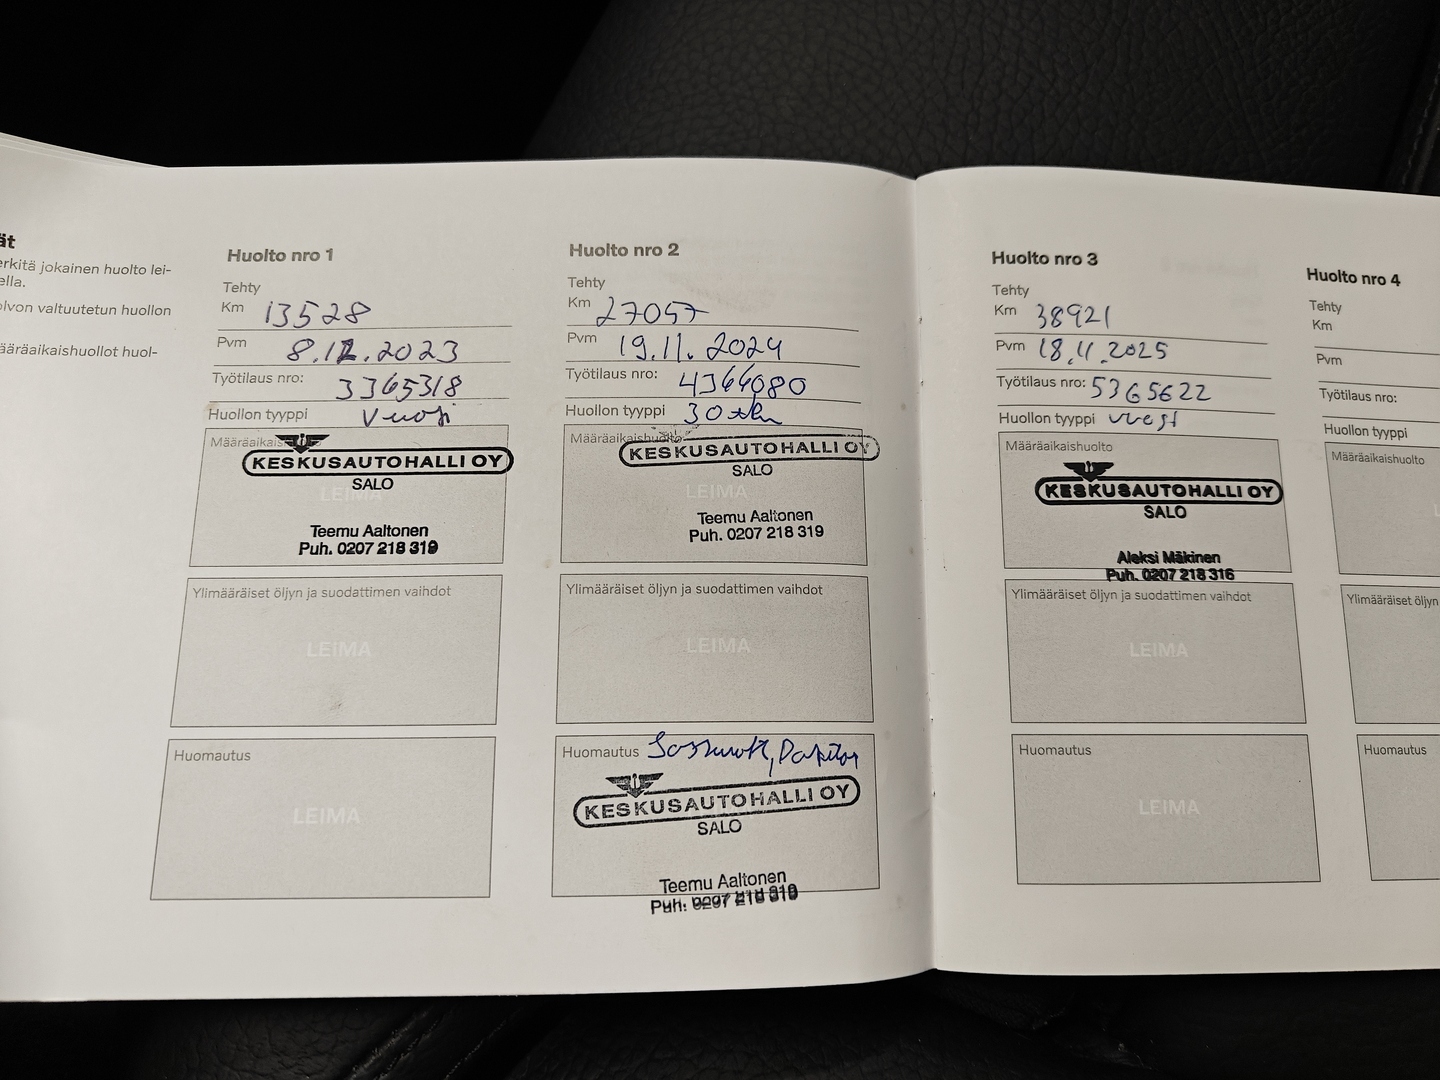 ät
erkitä jokainen huolto lei-
ella.
olvon valtuutetun huollon
ääräaikaishuollot huol-
Huolto nro 1
Tehty
Km 13528
Pvm 8.12.2023
Työtilaus nro: 3365318
Huollon tyyppi Vuosi
Määräaikais
KESKUSAUTOHALLI OY
SALO
LEIMA
Teemu Aaltonen
Puh. 0207 218 319
Ylimääräiset öljyn ja suodattimen vaihdot
LEIMA
Huomautus
LEIMA
Huolto nro 2
Tehty
Km 27057
Pvm 19.11.2024
Työtilaus nro: 4366080
Huollon tyyppi 30 tkm
Määräaikaishuolto
KESKUSAUTOHALLI OY
SALO
LEIMA
Teemu Aaltonen
Puh. 0207 218 319
Ylimääräiset öljyn ja suodattimen vaihdot
LEIMA
Huomautus
KESKUSAUTOHALLI OY
SALO
Teemu Aaltonen
Puh. 0207 218 319
Huolto nro 3
Tehty
Km 38921
Pvm 18.11.2025
Työtilaus nro: 5365622
Huollon tyyppi vuosi
Määräaikaishuolto
KESKUSAUTOHALLI OY
SALO
Aleksi Mäkinen
Puh. 0207 218 316
Ylimääräiset öljyn ja suodattimen vaihdot
LEIMA
Huomautus
LEIMA
Huolto nro 4
Tehty
Km
Pvm
Työtilaus nro:
Huollon tyyppi
Määräaikaishuolto
L
Ylimääräiset öljyn
Huomautus